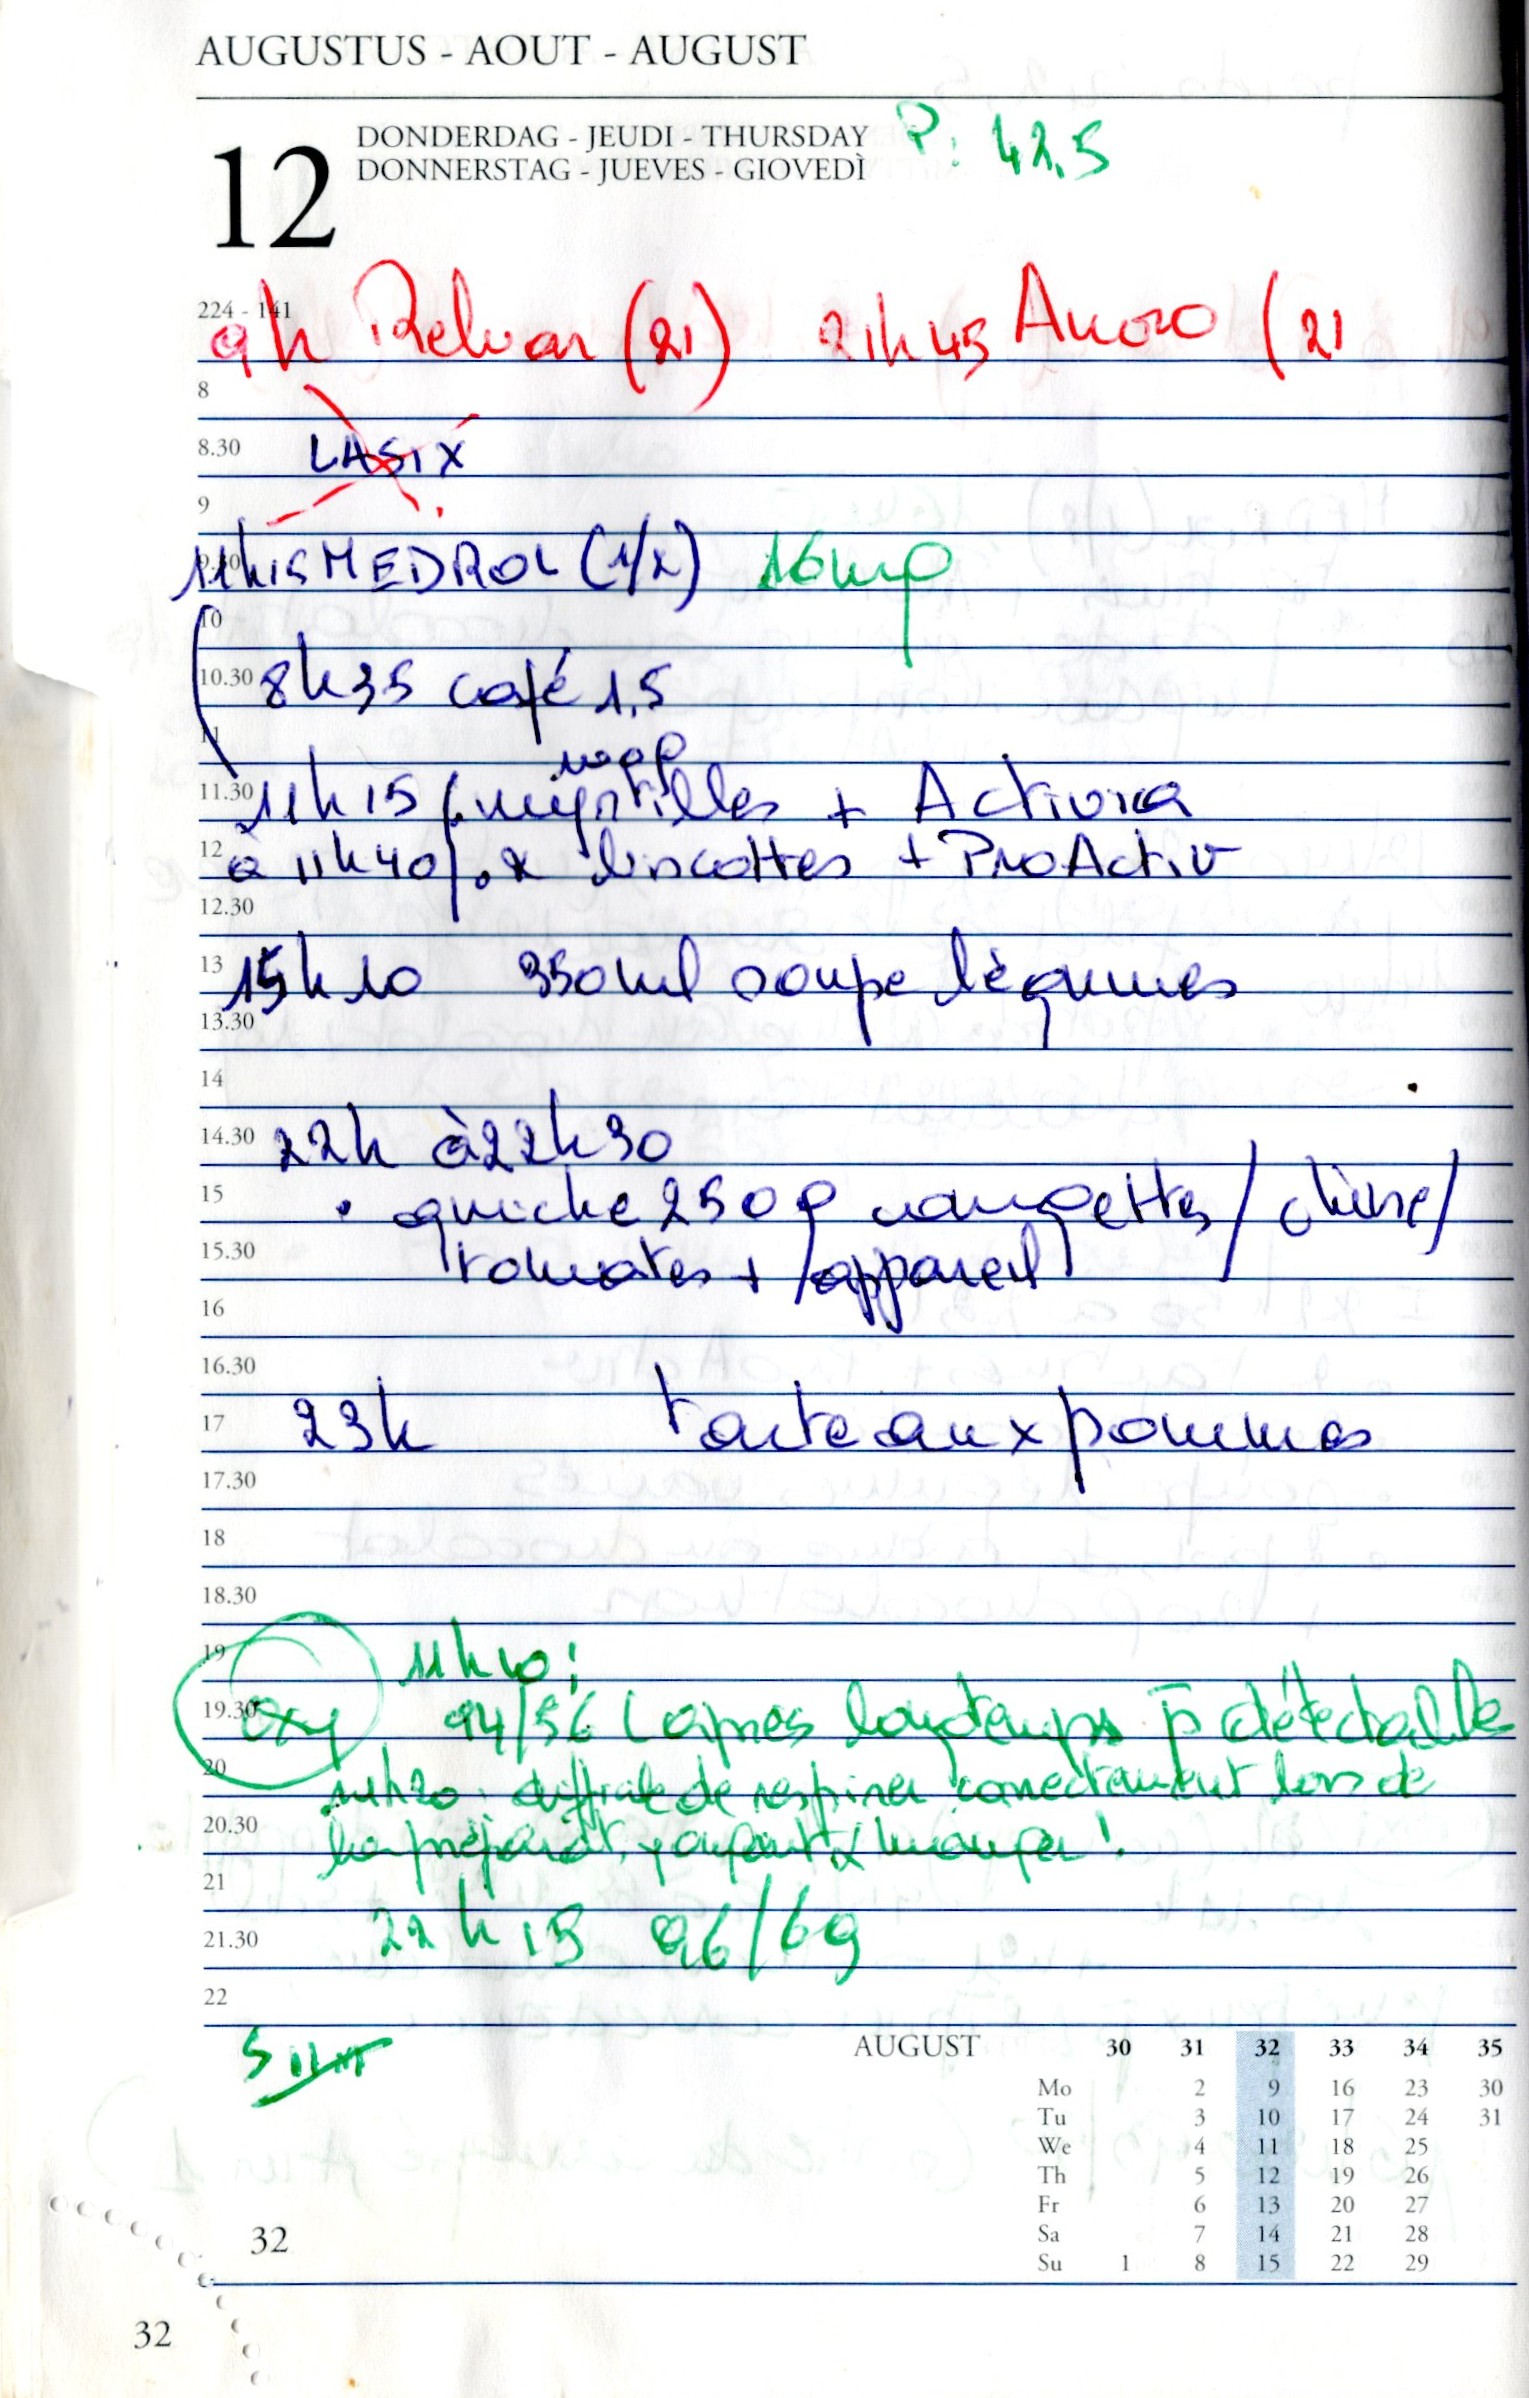 AUGUSTUS - AOUT - AUGUST
12
DONDERDAG - JEUDI - THURSDAY
DONNERSTAG - JUEVES - GIOVEDÌ
P: 42,5
224 - 141
9h Relvar (21) 21h45 Anoro (21
8
8.30 LASIX
9
9.30 11h15 MEDROL (1/2) 16mg
10
10.30 8h35 café 1,5
11 100g
11.30 11h15 . myrtilles + Activia
12 à 11h40 . 2 biscottes + ProActiv
12.30
13 15h10 350ml soupe légumes
13.30
14
14.30 22h à 22h30
15 . quiche 250g courgettes / chèvre /
15.30 tomates + appareil
16
16.30
17 23h tarte aux pommes
17.30
18
18.30
19 11h10 :
19.30 Oxy 94/56 (après longtemps détectable
20 11h20 : difficile de respirer correctement lors de
20.30 la préparat. manger !
21
21.30 22h15 96/69
22
AUGUST 30 31 32 33 34 35
Mo 2 9 16 23 30
Tu 3 10 17 24 31
We 4 11 18 25
Th 5 12 19 26
Fr 6 13 20 27
Sa 7 14 21 28
Su 1 8 15 22 29
32
32